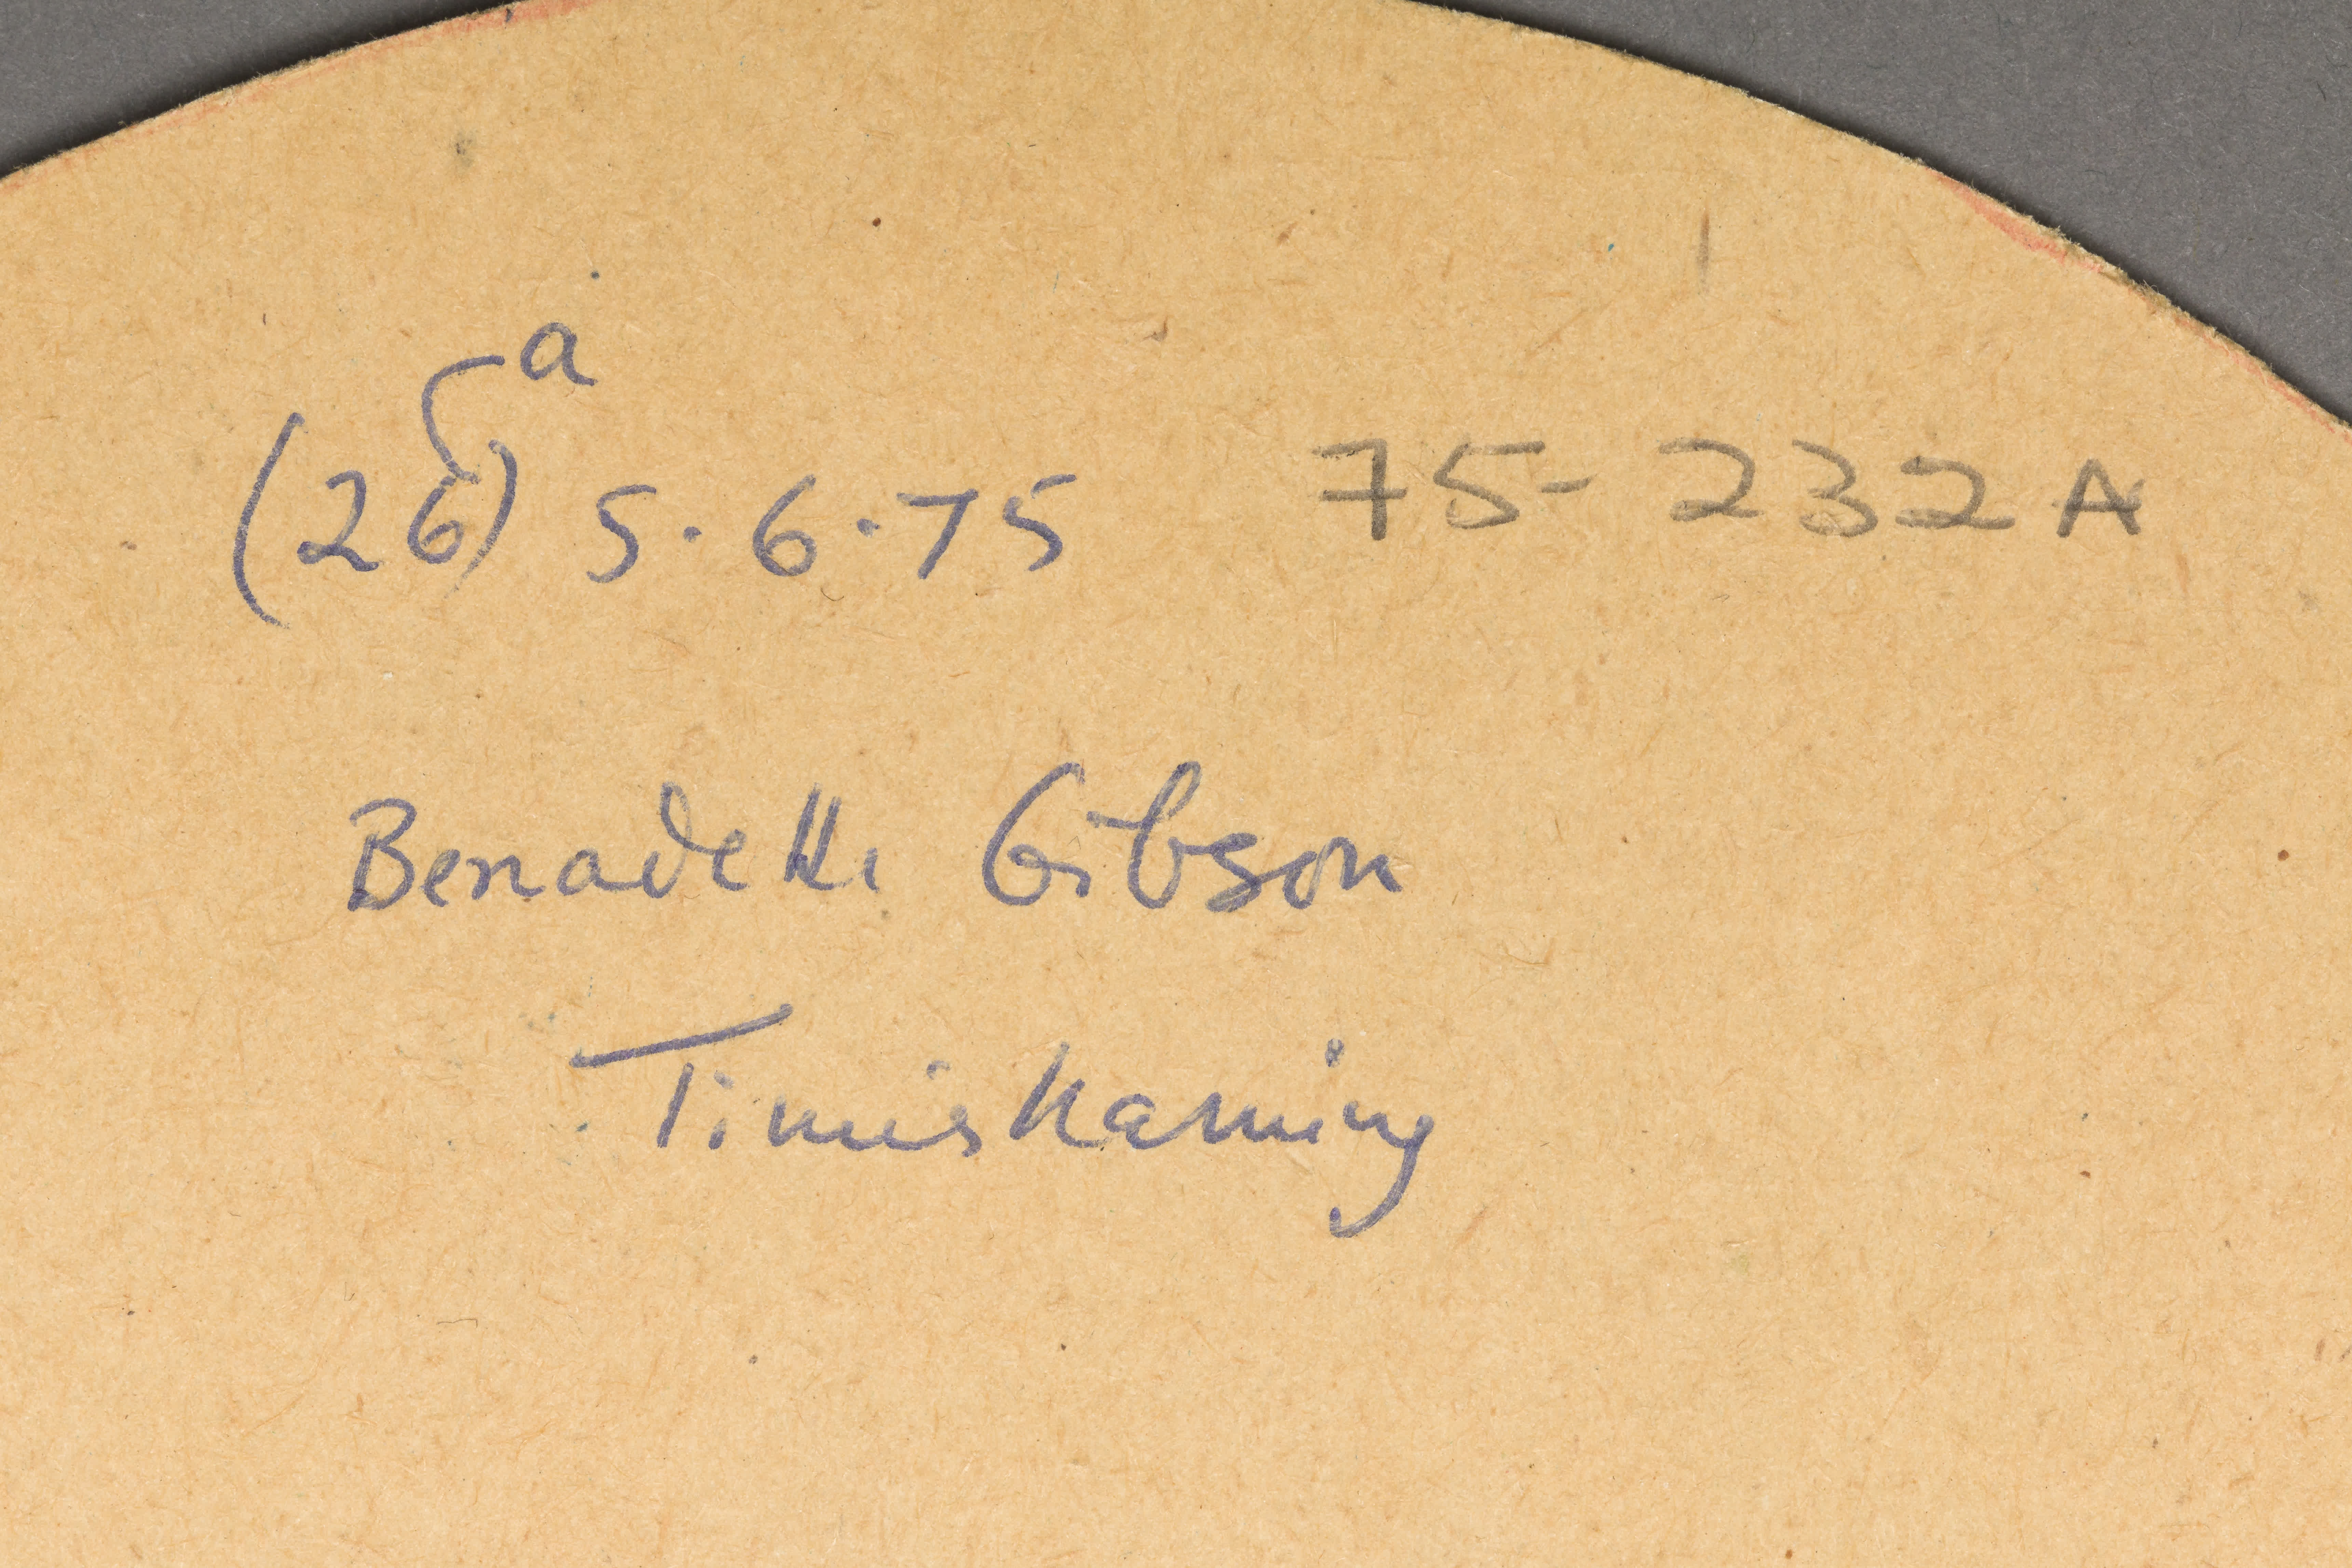 (26a) 5.6.75 75-232A
Benadette Gibson
Timiskaming